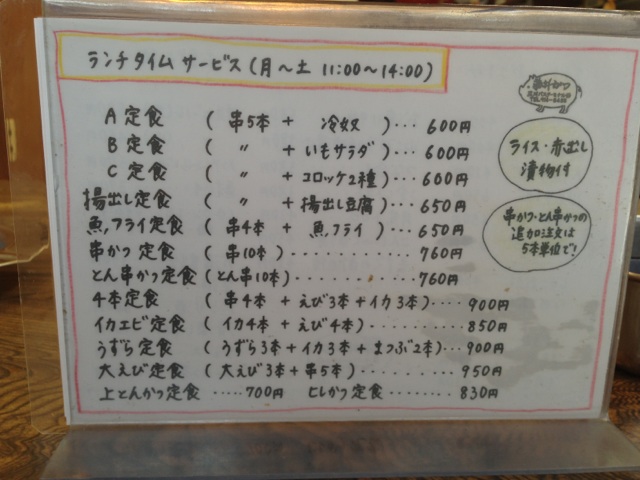 ランチタイムサービス(月〜土 11:00〜14:00)
A定食 (串5本 + 冷奴 )・・・600円
B定食 ( 〃 + いもサラダ )・・・600円
C定食 ( 〃 + コロッケ2種 )・・・600円
揚出し定食 ( 〃 + 揚出し豆腐 )・・・650円
魚フライ定食 (串4本 + 魚フライ )・・・650円
串かつ定食 (串10本)・・・・・・・・・・・・760円
とん串かつ定食(とん串10本)・・・・・・・・・760円
4本定食 (串4本 + えび3本 + イカ3本)・・・・900円
イカエビ定食 (イカ4本 + えび4本)・・・・・・・・・850円
うずら定食 (うずら3本 + イカ3本 + まつぶ2本)・・・900円
大えび定食 (大えび3本 + 串5本)・・・・・・・・・950円
上とんかつ定食 ・・・・・700円 ヒレかつ定食 ・・・・・・・・830円
ライス・赤出し
漬物付
串かつ・とん串かつの
追加注文は
5本単位で!